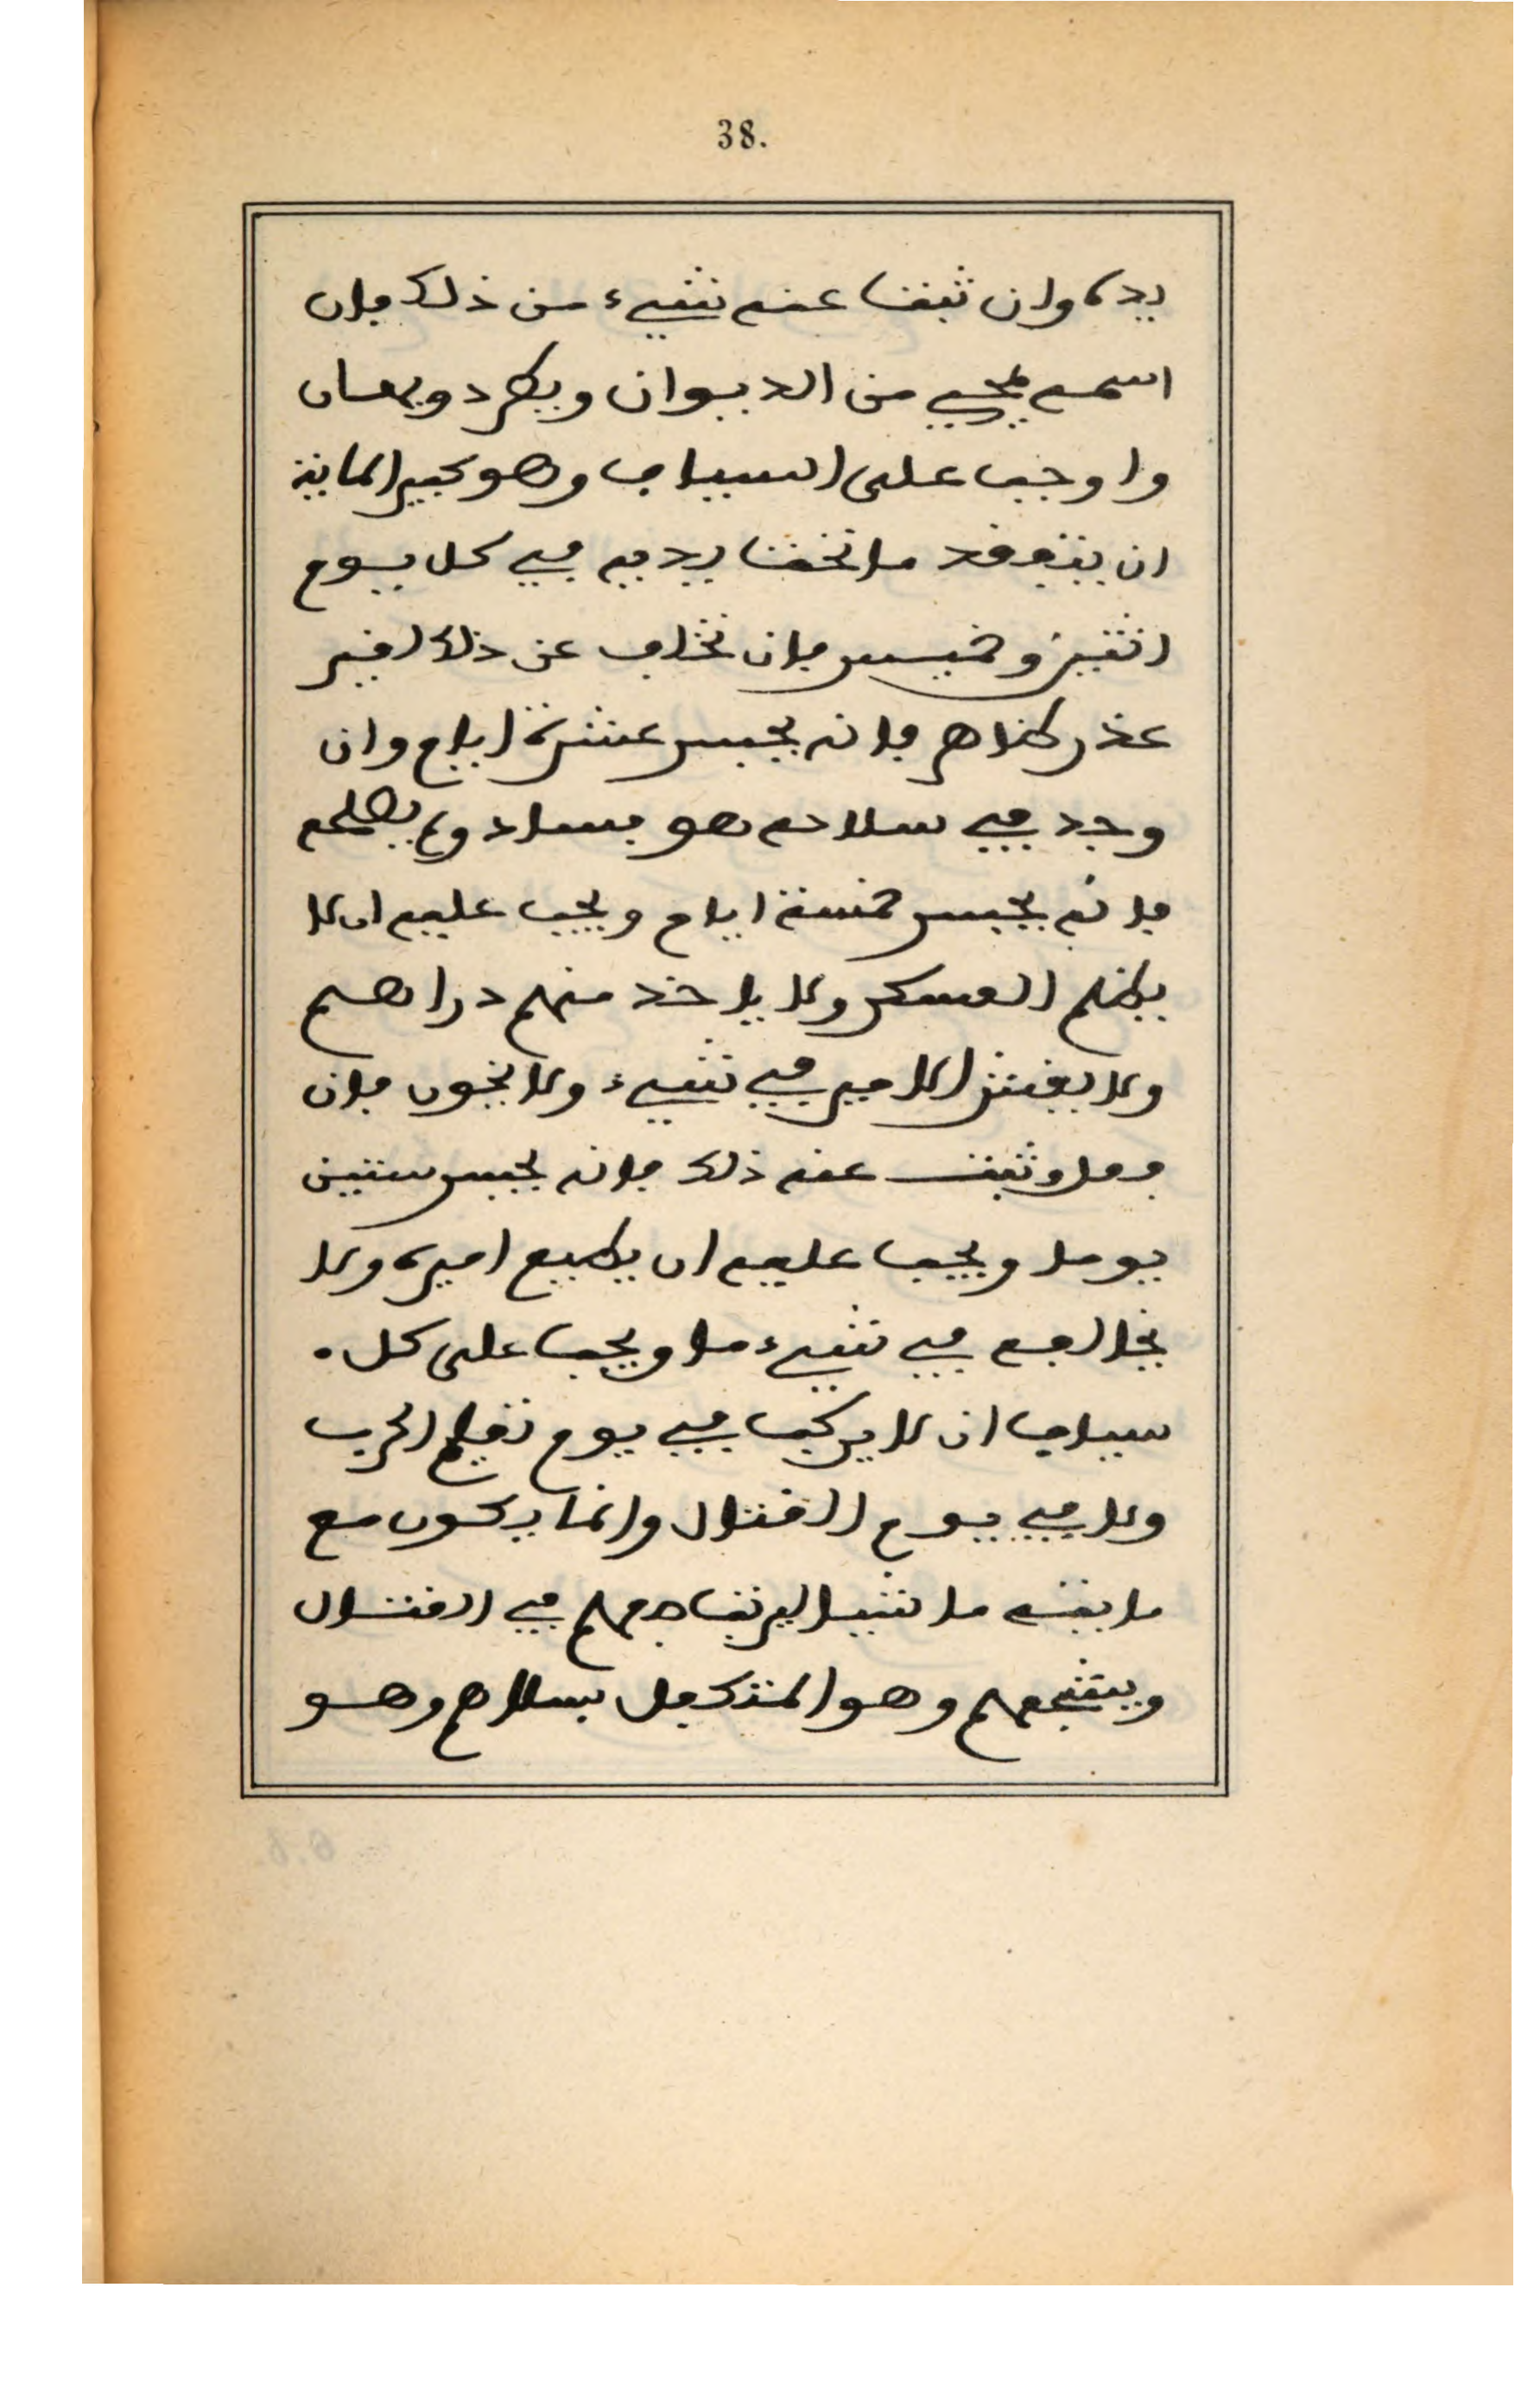 38.
يده وان ثبت عنه شيء من ذلك فإن
اسمه يمحي من الديوان ويطرد ويهان
واوجب على السياف وهو كبير الماية
ان يتفقد ما تحت يديه في كل يوم
اثنين وخميس فان تخلف عن ذلك لغير
عذر ظاهر فانه يحبس عشرة ايام وان
وجد في سلاحه هو فساد ولم يصلحه
فانه يحبس خمسة ايام ويجب عليه ان لا
يظلم العسكر ولا ياخذ منهم دراهم
ولا يغش الامير في شيء ولا يخون فان
فعل وثبت عنه ذلك فانه يحبس ستين
يوما ويجب عليه ان يطيع اميره ولا
يخالفه في شيء ما ويجب على كل
سياف ان لا يركب في يوم تعليم الحرب
ولا في يوم القتال وانما يكون مع
مايته ماشيا ليرتب صفهم في القتال
ويشجعهم وهو المتكفل بسلاحهم وهو